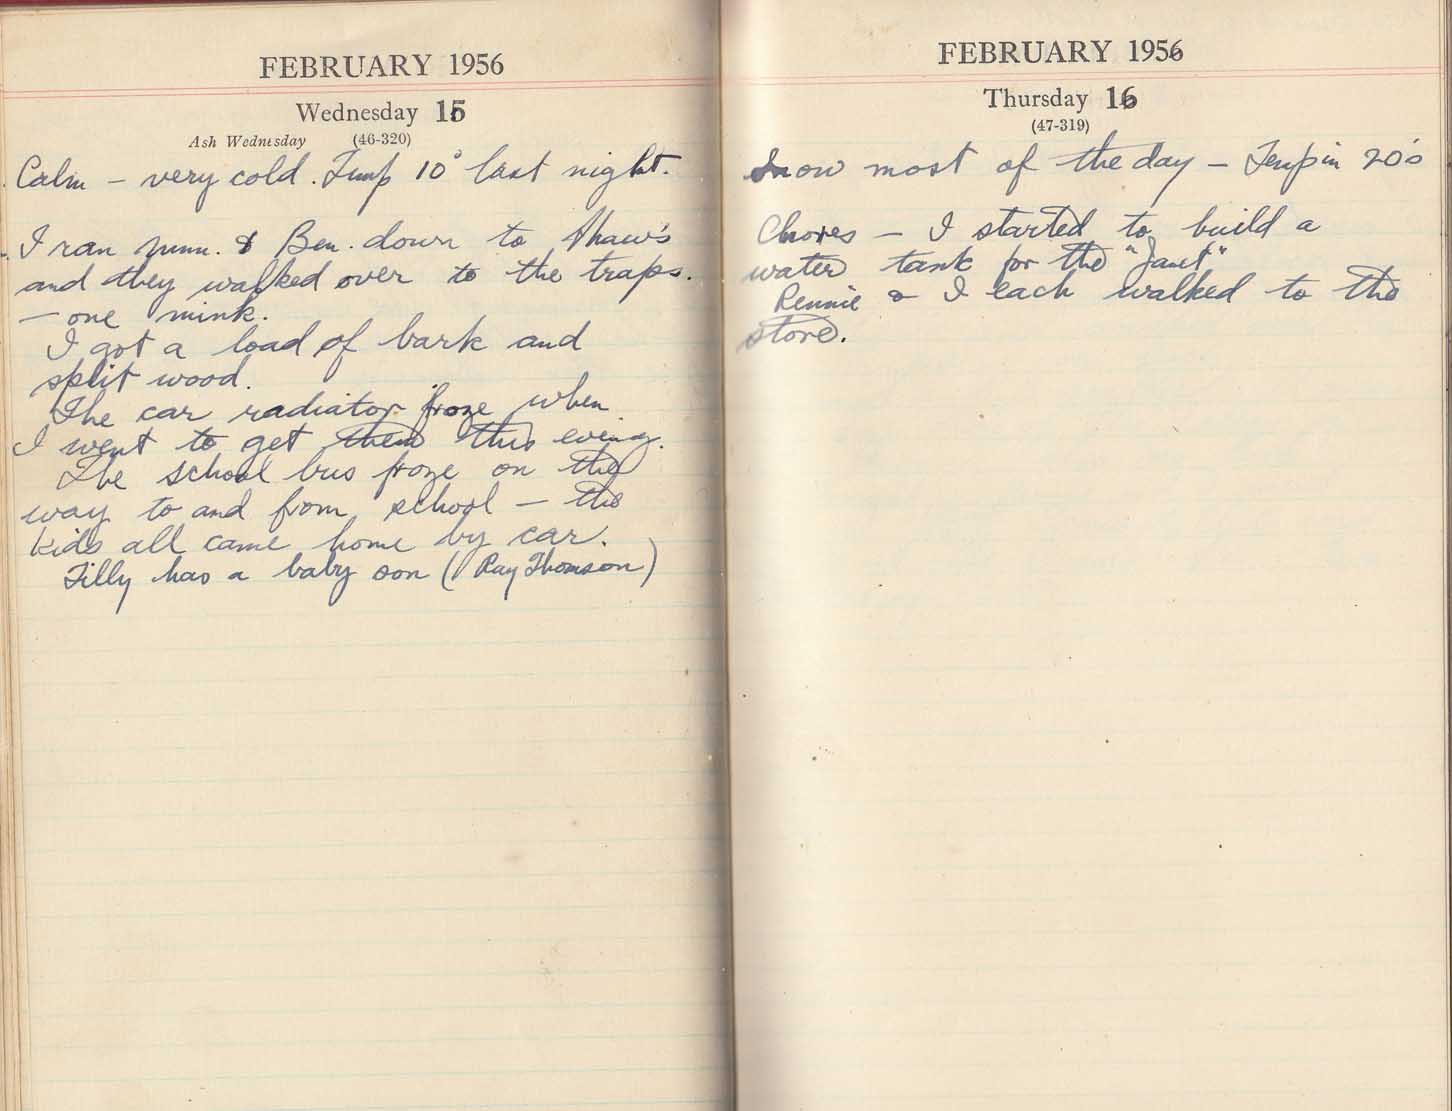 FEBRUARY 1956
Wednesday 15
Ash Wednesday (46-320)
Calm - very cold. Temp 10° last night.
I ran & Ben. down to Shaw's
and they walked over to the traps.
- one mink.
I got a load of bark and
split wood.
The car radiator froze when
I went to get them this evening.
The school bus froze on the
way to and from school - the
kids all came home by car.
Tilly has a baby son (Ray Thomson)
FEBRUARY 1956
Thursday 16
(47-319)
Snow most of the day - Temp in 20's
Chores - I started to build a
water tank for the "Janet"
Rennie & I each walked to the
store.